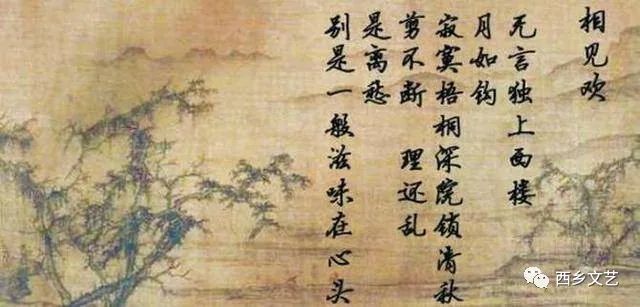 相见欢
无言独上西楼
月如钩
寂寞梧桐深院锁清秋
剪不断 理还乱
是离愁
别是一般滋味在心头
西乡文艺